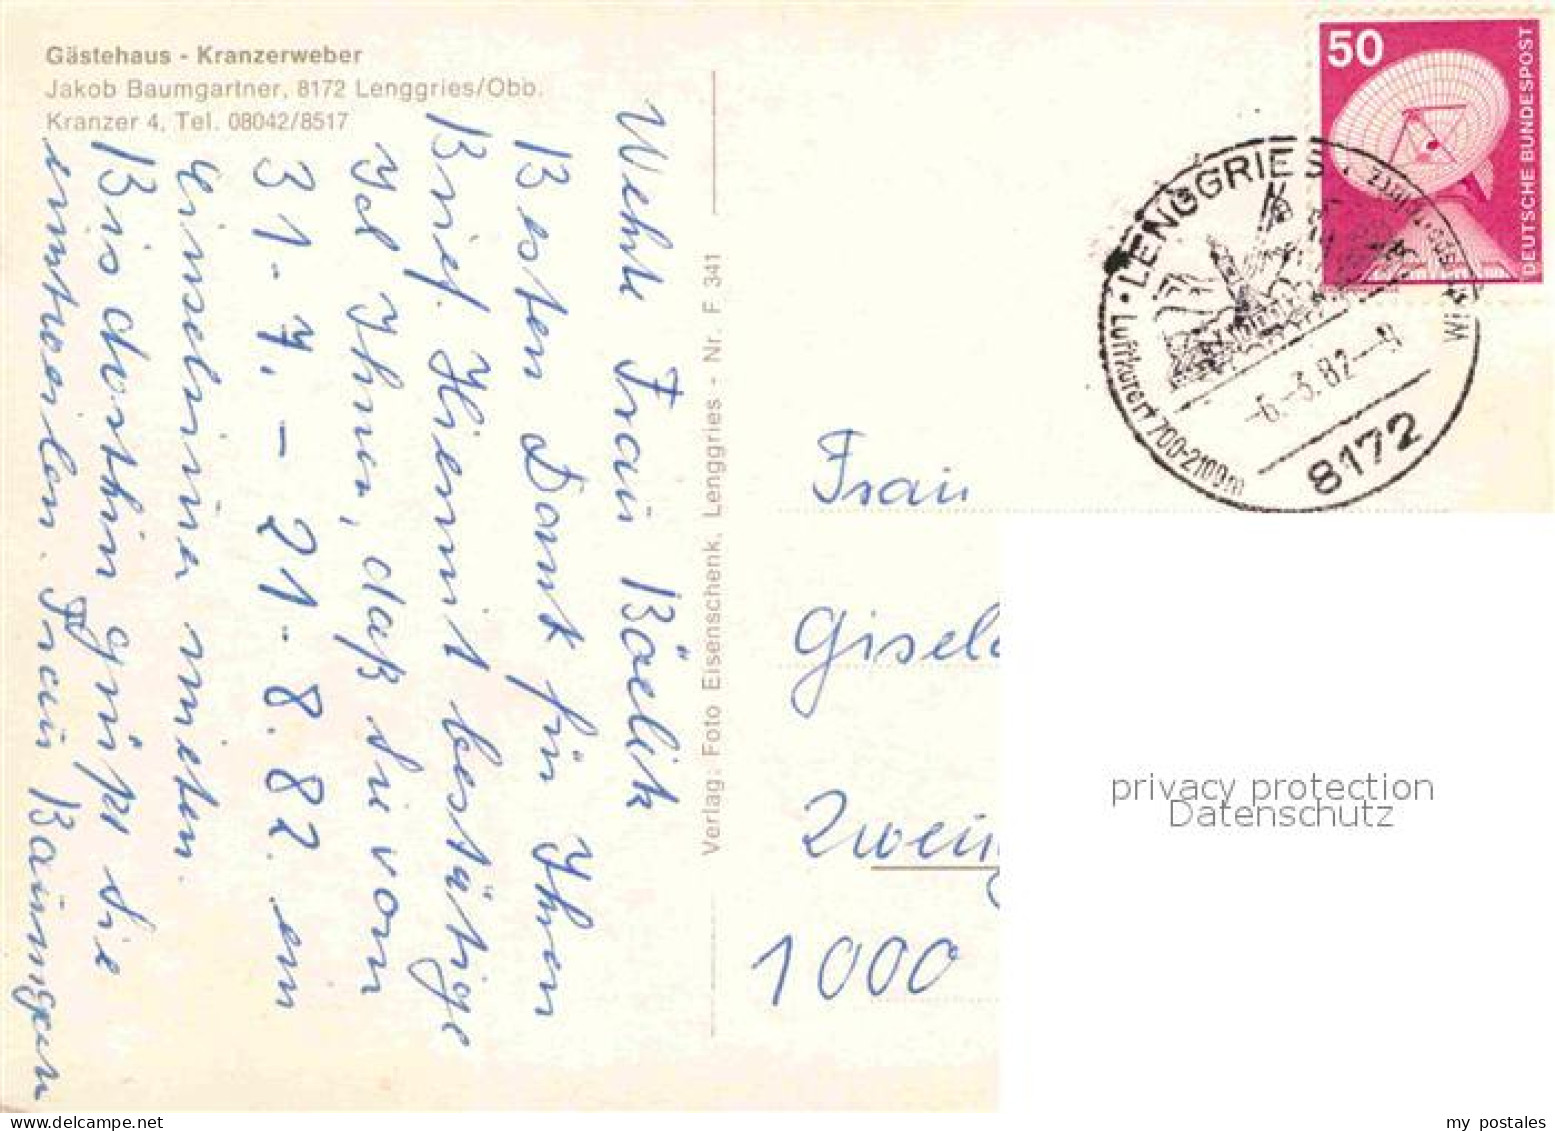 Gästehaus - Kranzerweber
Jakob Baumgartner, 8172 Lenggries/Obb.
Kranzer 4, Tel. 08042/8517
Wehrte Frau
Besten Dank für Ihren
Brief. Hiermit bestätige
Ich Ihnen, daß Sie vom
31.7. – 21.8.82 ein
mieten.
Bis dorthin grüßt Sie
Frau
Verlag: Foto Eisenschenk, Lenggries - Nr. F 341
50
DEUTSCHE BUNDESPOST
LENGGRIES
Luftkurort 700-2100m
-6.-3.82--
8172
Frau
Gisel
Zwein
1000
privacy protection
Datenschutz
my postales